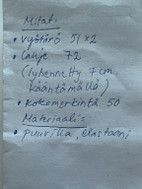 Mitat:
• vyötärö 51 x 2
• Lahje 72
(lyhennetty 7 cm
kääntämällä)
• Kokomerkintä 50
Materiaali:
• puuvilla, elastaani